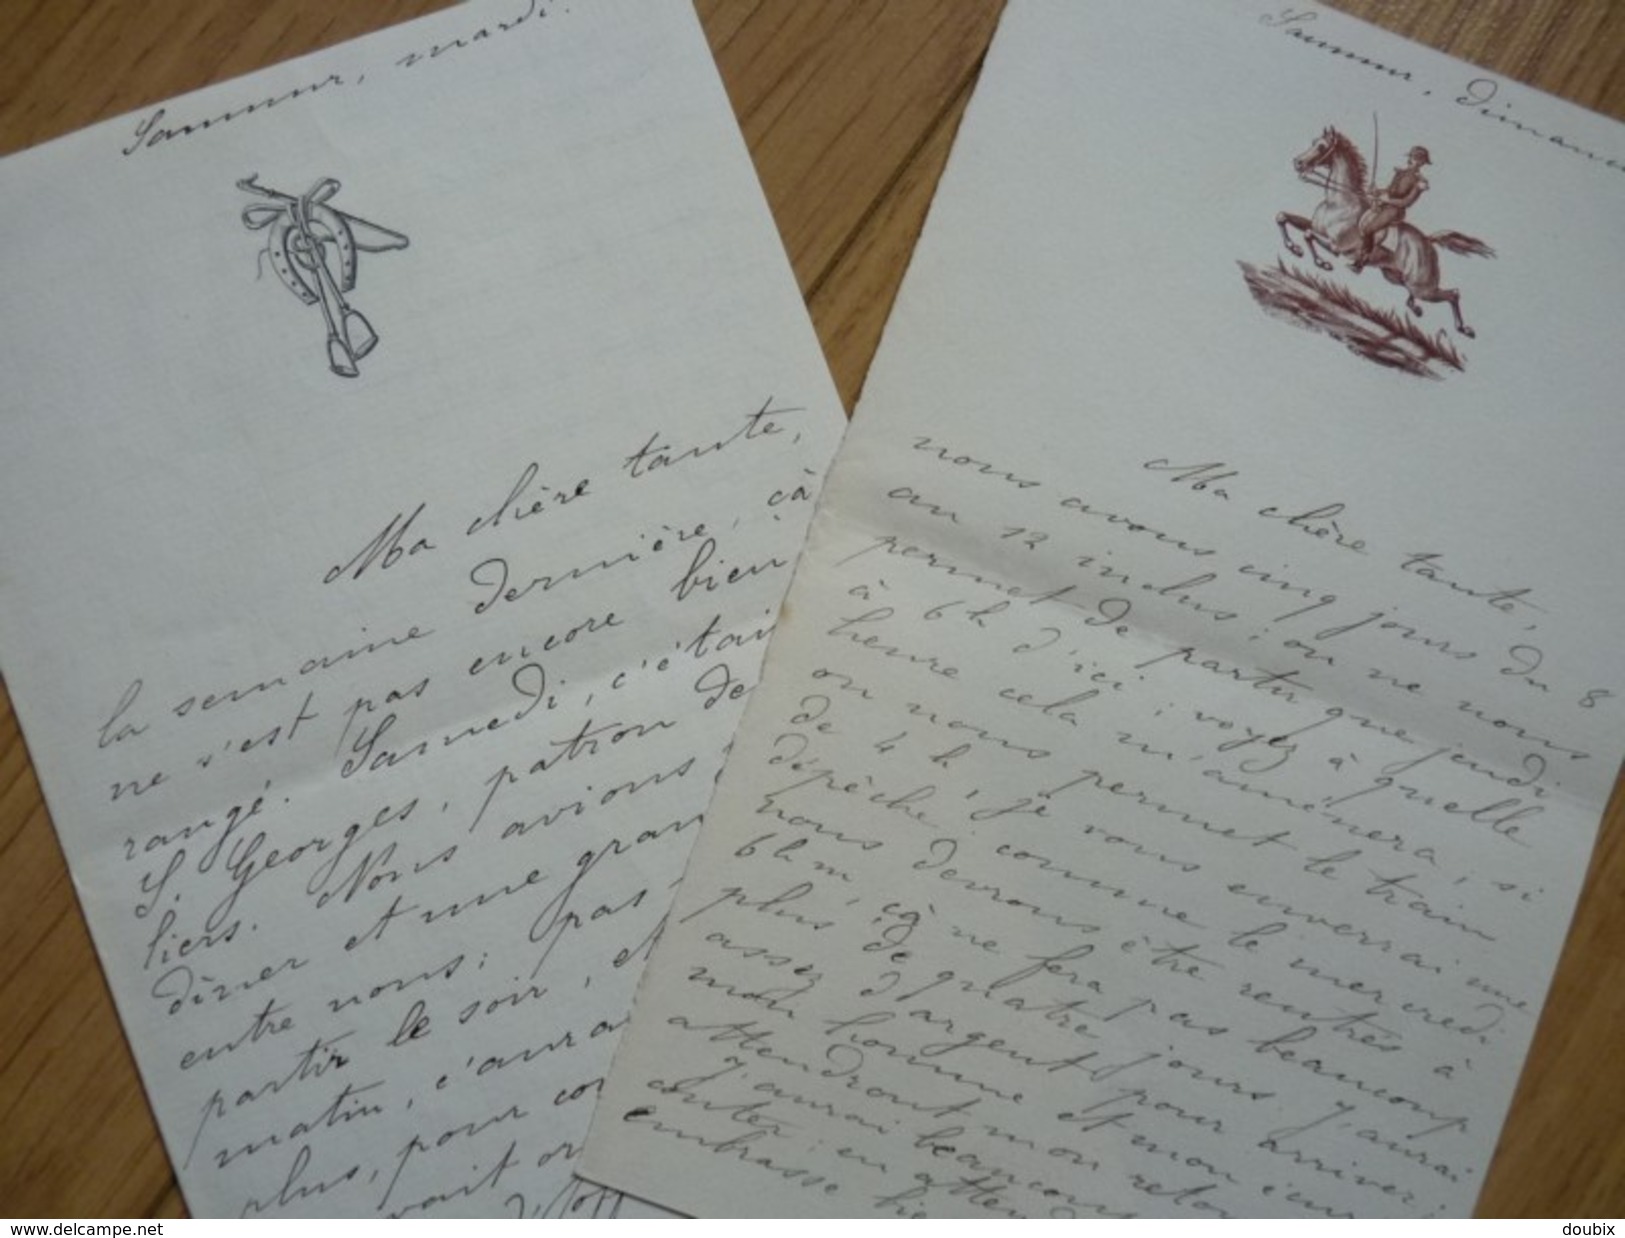 Saumur, mardi.
Ma chère tante,
la semaine dernière, çà
ne s'est pas encore bien
rangé. Samedi, c'était
S. Georges, patron de
liers. Nous avions
dîner et une gran
entre nous; pas
partir le soir, et
matin, c'aura
plus, pour co
vait on
Saumur, Dimanc
Ma chère tante,
nous avons cinq jours du 8
au 12 inclus; on ne nous
permet de partir que jeudi
à 6h d'ici; voyez à quelle
heure cela m'amènera; si
on nous permet le train
de 4h, je vous enverrai une
dépêche; comme le mercredi
nous devrons être rentrés à
6h m, çà ne fera pas beaucoup
plus de quatre jours. J'aurai
assez d'argent pour arriver;
mon homme et mon
attendront mon retou
J'aurai beaucoup
conter; en atten
embrasse bie
www.delcampe.net
doubix